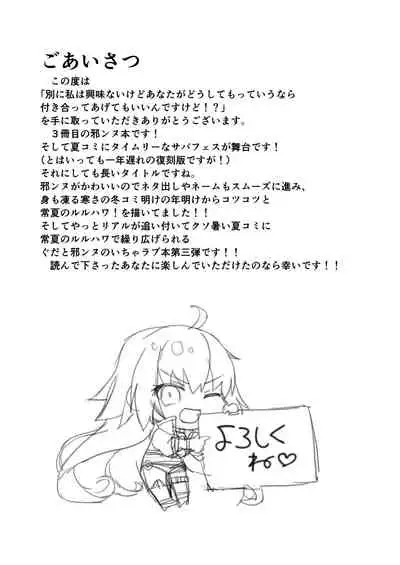 ごあいさつ
この度は
「別に私は興味ないけどあなたがどうしてもっていうなら
付き合ってあげてもいいんですけど！？」
を手に取っていただきありがとうございます。
３冊目の邪ンヌ本です！
そして夏コミにタイムリーなサバフェスが舞台です！
（とはいっても一年遅れの復刻版ですが！）
それにしても長いタイトルですね。
邪ンヌがかわいいのでネタ出しやネームもスムーズに進み、
身も凍る寒さの冬コミ明けの年明けからコツコツと
常夏のルルハワ！を描いてました！！
そしてやっとリアルが追い付いてクソ暑い夏コミに
常夏のルルハワで繰り広げられる
ぐだと邪ンヌのいちゃラブ本第三弾です！！
読んで下さったあなたに楽しんでいただけたのなら幸いです！！
よろしく
ね♡